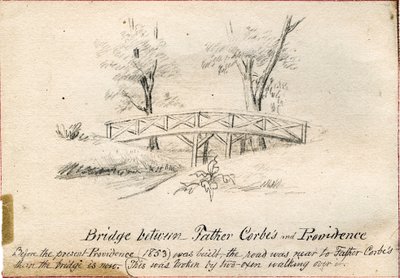 Bridge between Father Corbe's and Providence
Before the present Providence 1853) was built, the road was near to Father Corbe's
than the bridge is now. (This was broken by two oxen walking over.)